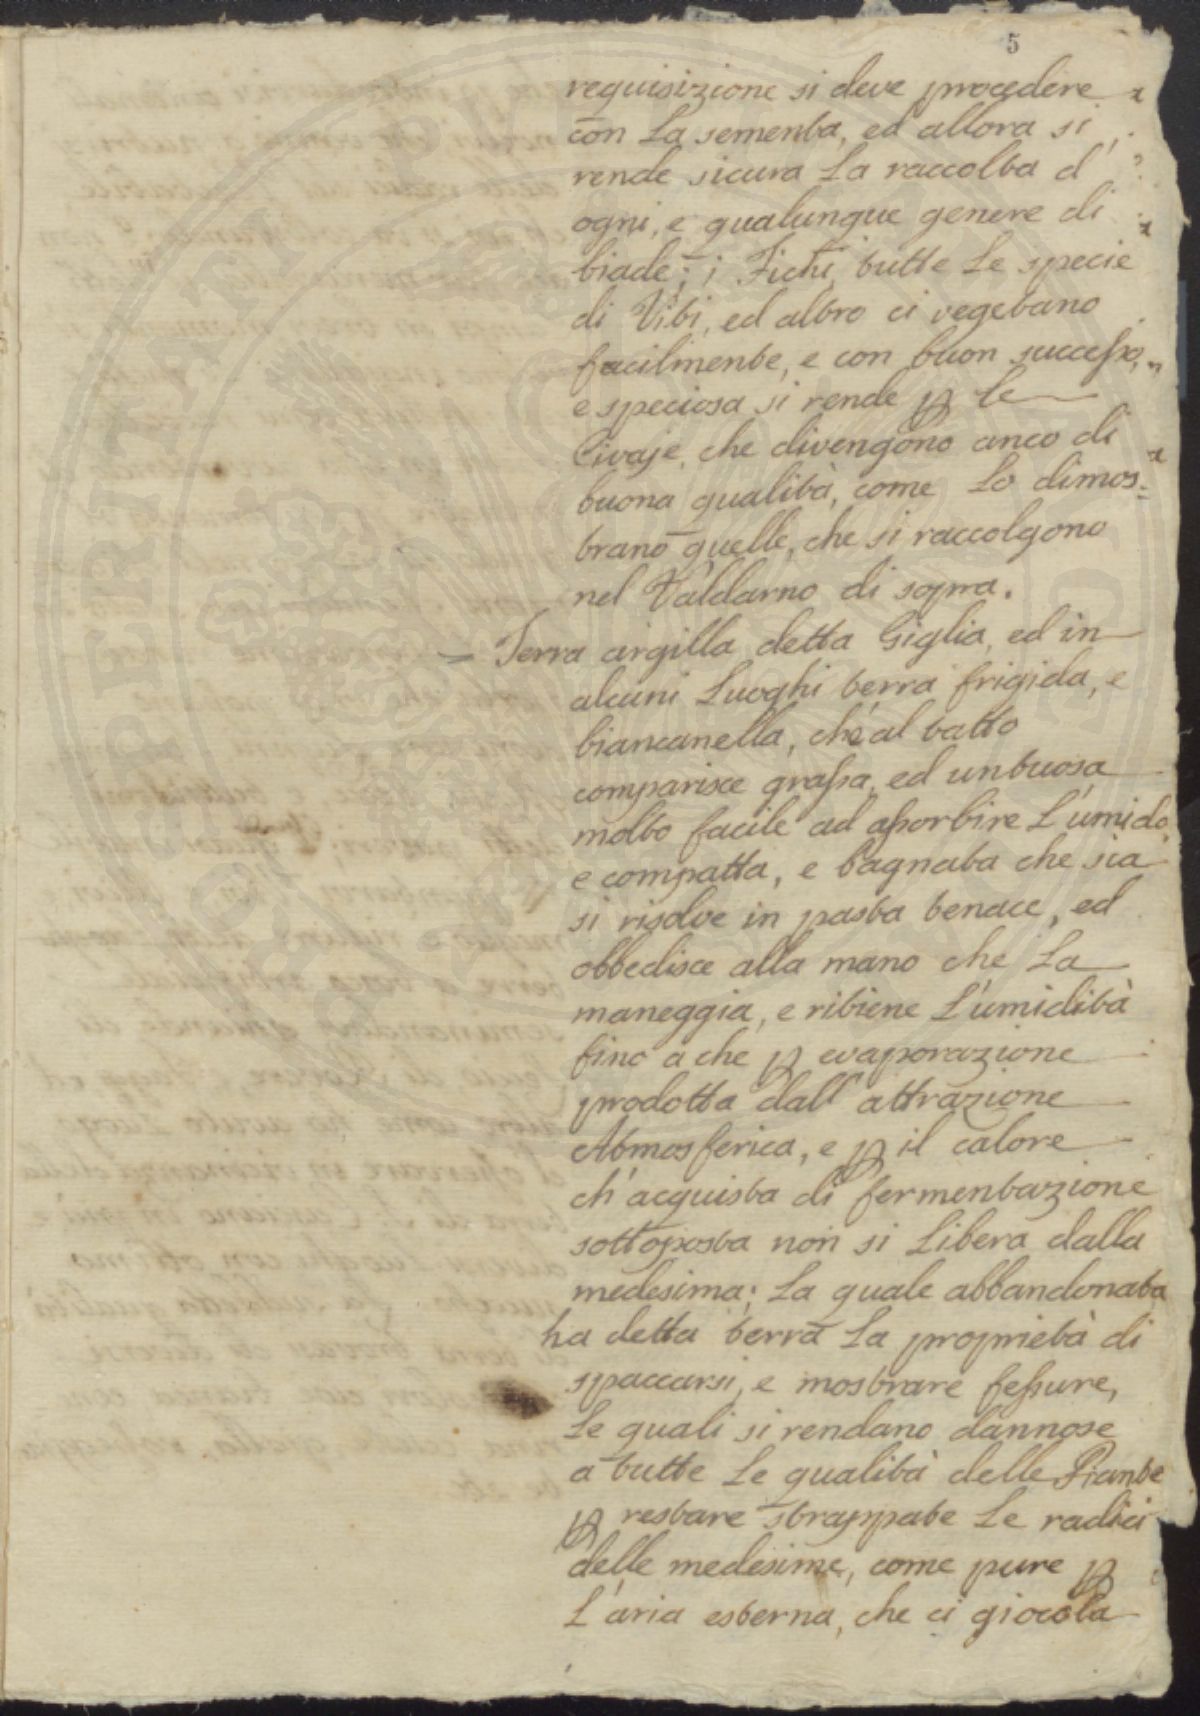 5
requisizione si deve procedere
con La sementa, ed allora si
rende sicura La raccolta d'
ogni, e qualunque genere di
biade; i Fichi, tutte Le specie
di Viti, ed altro ci vegetano
facilmente, e con buon successo,
e speciosa si rende p le
Civaje, che divengono anco di
buona qualità, come Lo dimos=
trano quelle, che si raccolgono
nel Valdarno di sopra.
= Terra argilla detta Giglia, ed in
alcuni Luoghi terra frigida, e
biancanella, che al tatto
comparisce grassa, ed untuosa
molto facile ad assorbire L'umido,
e compatta, e bagnata che sia
si risolve in pasta tenace, ed
obbedisce alla mano che La
maneggia, e ritiene L'umidità
fino a che p evaporazione
prodotta dall'attrazione
Atmosferica, e p il calore
ch'acquista di fermentazione
sottoposta non si Libera dalla
medesima; La quale abbandonata
ha detta terra La proprietà di
spaccarsi, e mostrare fessure,
Le quali si rendano dannose
a tutte Le qualità delle Piante
p restare strappate Le radici
delle medesime, come pure p
L'aria esterna, che ci giocola